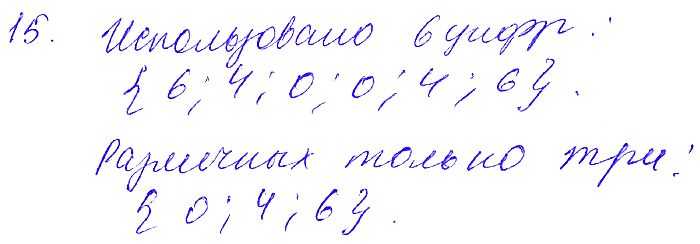 15. Использовано 6 цифр:
{ 6; 4; 0; 0; 4; 6}.
Различных только три:
{ 0; 4; 6}.